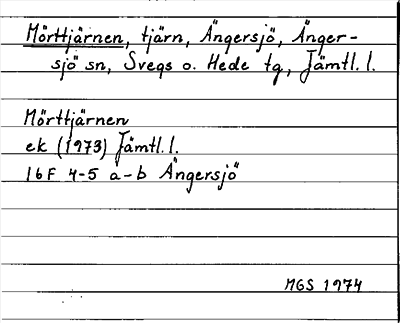 Mörttjärnen, tjärn, Ängersjö, Änger-
sjö sn, Svegs o. Hede tg, Jämtl. l.
Mörttjärnen
ek (1973) Jämtl. l.
16F 4-5 a-b Ängersjö
MGS 1974